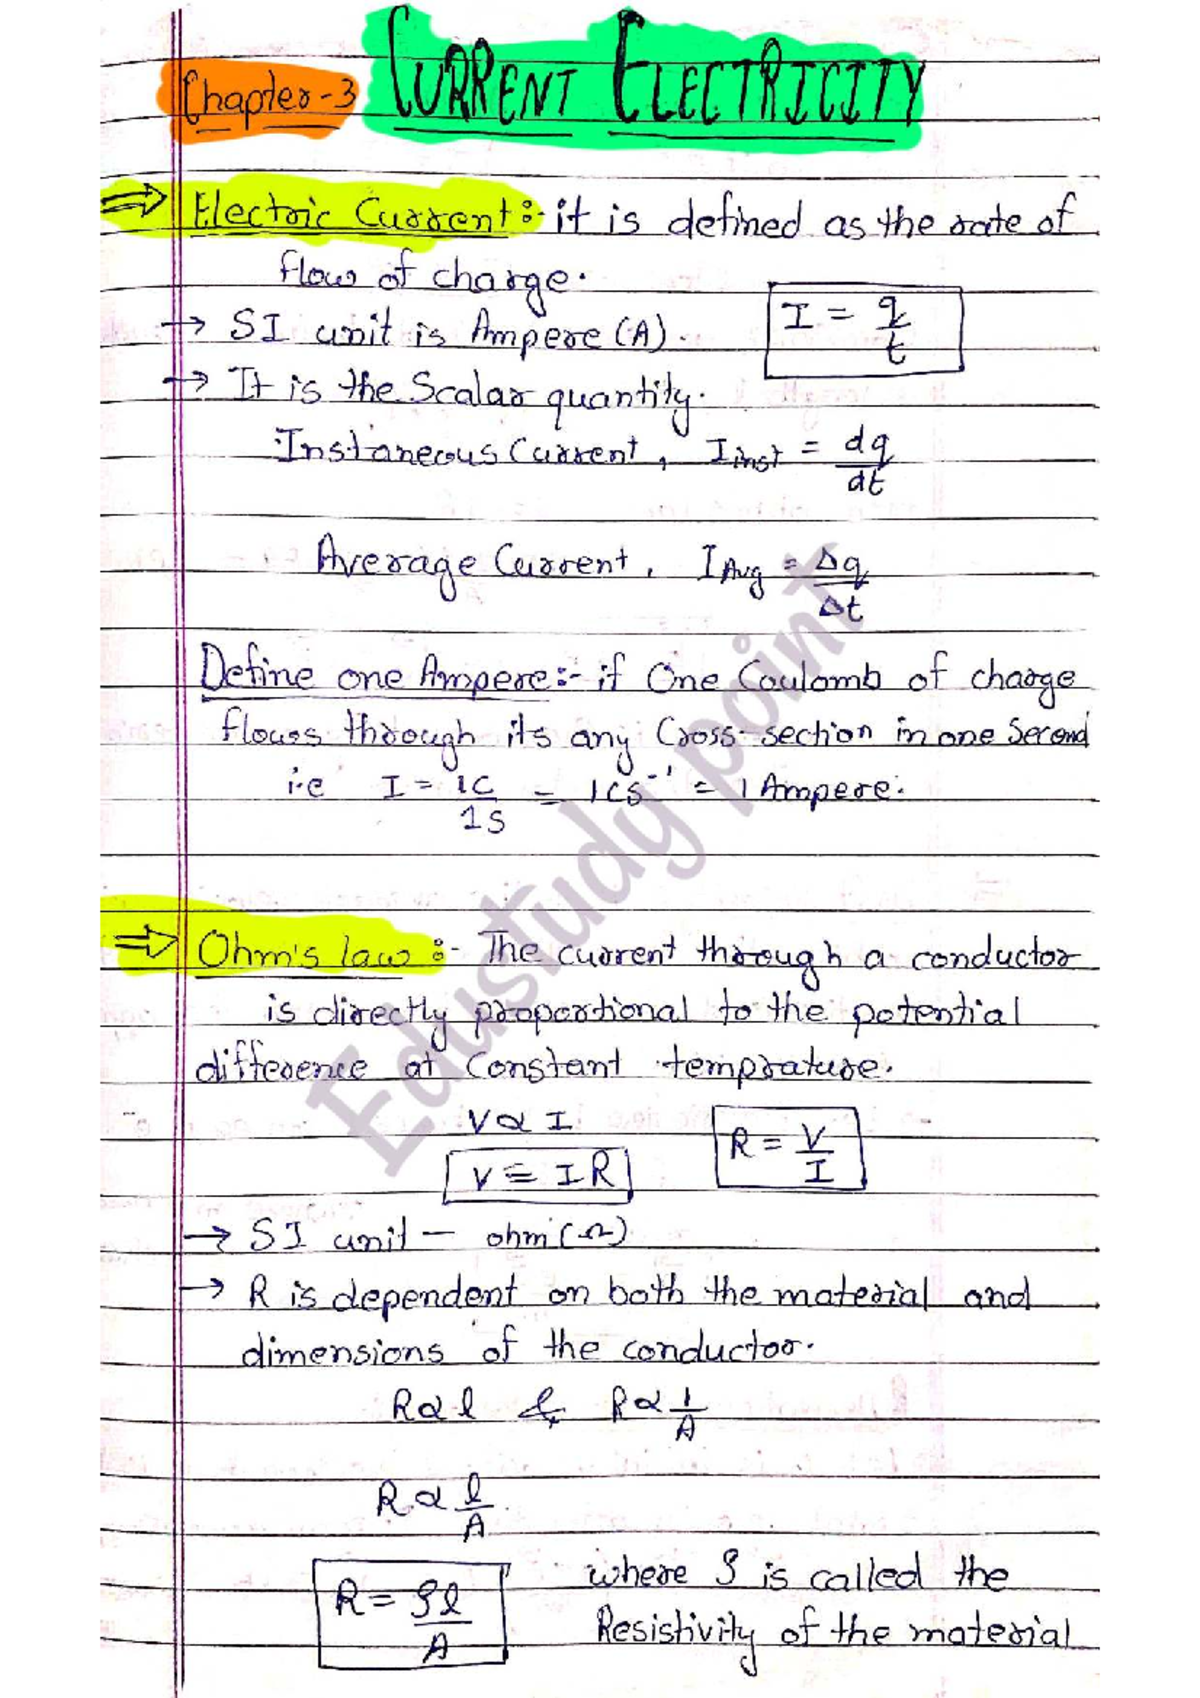 Chapter-3 CURRENT ELECTRICITY
⇒ Electric Current:- it is defined as the rate of
flow of charge.
→ SI unit is Ampere (A).
I = q/t
→ It is the Scalar quantity.
Instaneous Current, I inst = dq/dt
Average Current, I Avg = Δq/Δt
Define one Ampere:- if One Coulomb of charge
flows through its any Cross-section in one Second
i.e I = 1C/1S = 1CS⁻¹ = 1 Ampere.
⇒ Ohm's law:- The current through a conductor
is directly proportional to the potential
difference at Constant temprature.
V ∝ I
R = V/I
V = IR
→ SI unit – ohm (Ω)
→ R is dependent on both the material and
dimensions of the conductor.
R ∝ l & R ∝ 1/A
R ∝ l/A
R = ρl/A
where ρ is called the
Resistivity of the material
Edustudy point